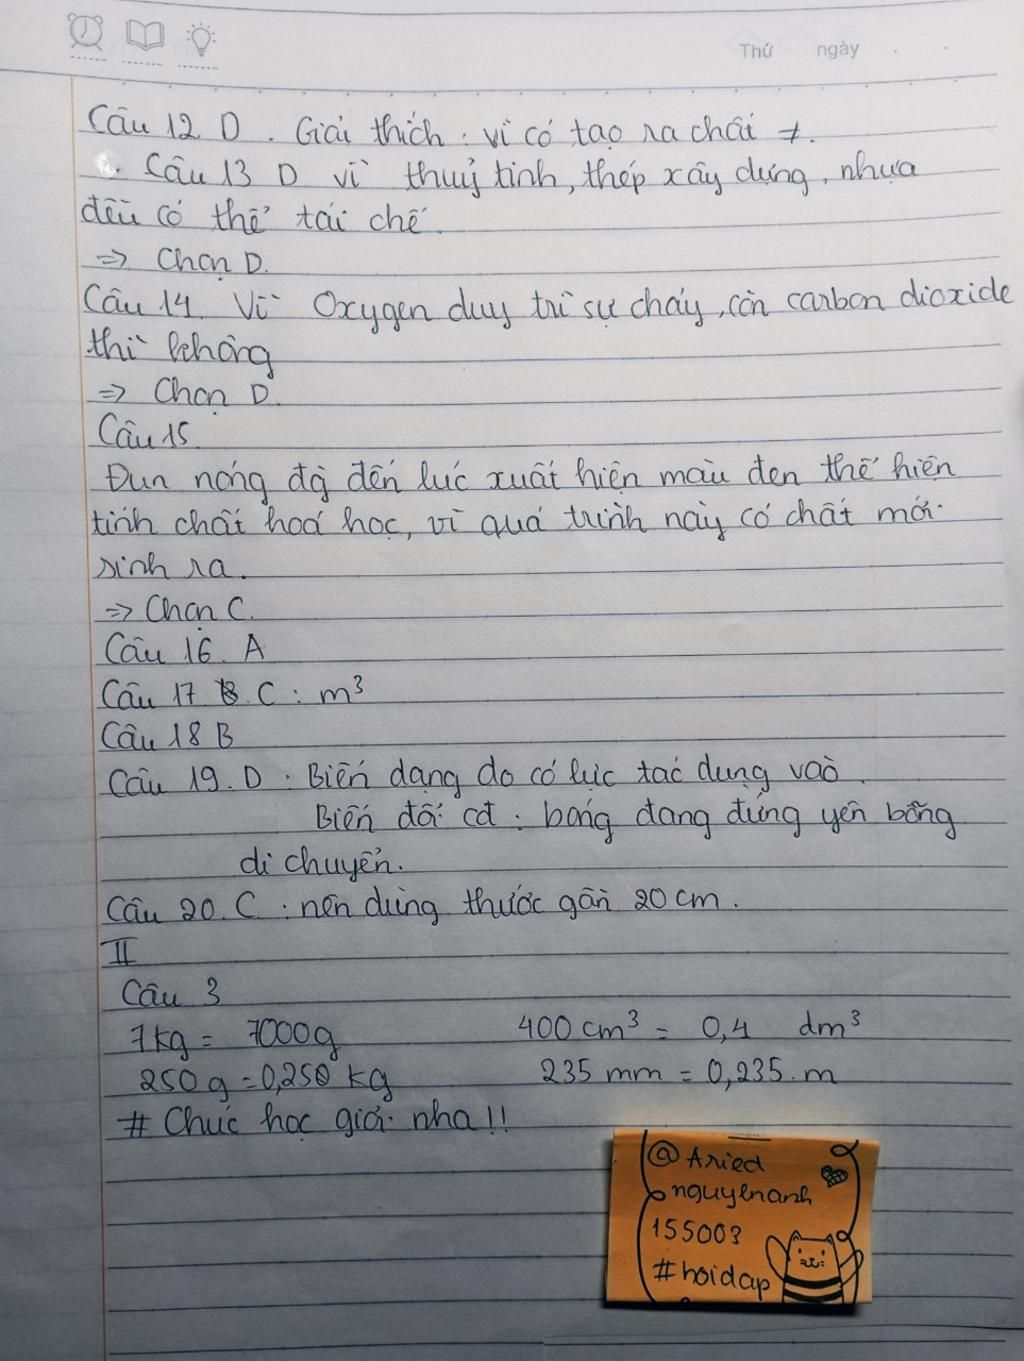 Thứ ngày
Câu 12 D. Giải thích: vì có tạo ra chất ≠.
Câu 13 D vì thuỷ tinh, thép xây dựng, nhựa
đều có thể tái chế.
=> Chọn D.
Câu 14. Vì Oxygen duy trì sự cháy, còn carbon dioxide
thì không
=> Chọn D.
Câu 15
Đun nóng đg đến lúc xuất hiện màu đen thể hiện
tính chất hoá học, vì quá trình này có chất mới
sinh ra.
=> Chọn C.
Câu 16. A
Câu 17 C: m³
Câu 18 B
Câu 19. D: Biến dạng do có lực tác dụng vào.
Biến đổi cđ: bóng đang đứng yên bỗng
di chuyển.
Câu 20. C: nên dùng thước gần 20 cm.
II
Câu 3
7kg = 7000g 400 cm³ = 0,4 dm³
250 g = 0,250 kg 235 mm = 0,235.m
# Chúc học giỏi nha!!
@Aried
nguyenanh
155003
#hoidap